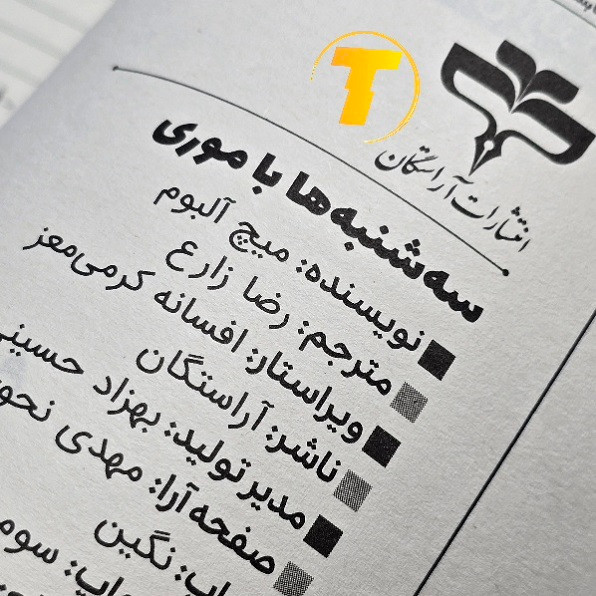 T
انتشارات آراستگان
سه‌شنبه‌ها با موری
نویسنده: میچ آلبوم
مترجم: رضا زارع
ویراستار: افسانه کرمی‌معز
ناشر: آراستگان
مدیر تولید: بهزاد حسینی
صفحه آرا: مهدی
نگین
سوم